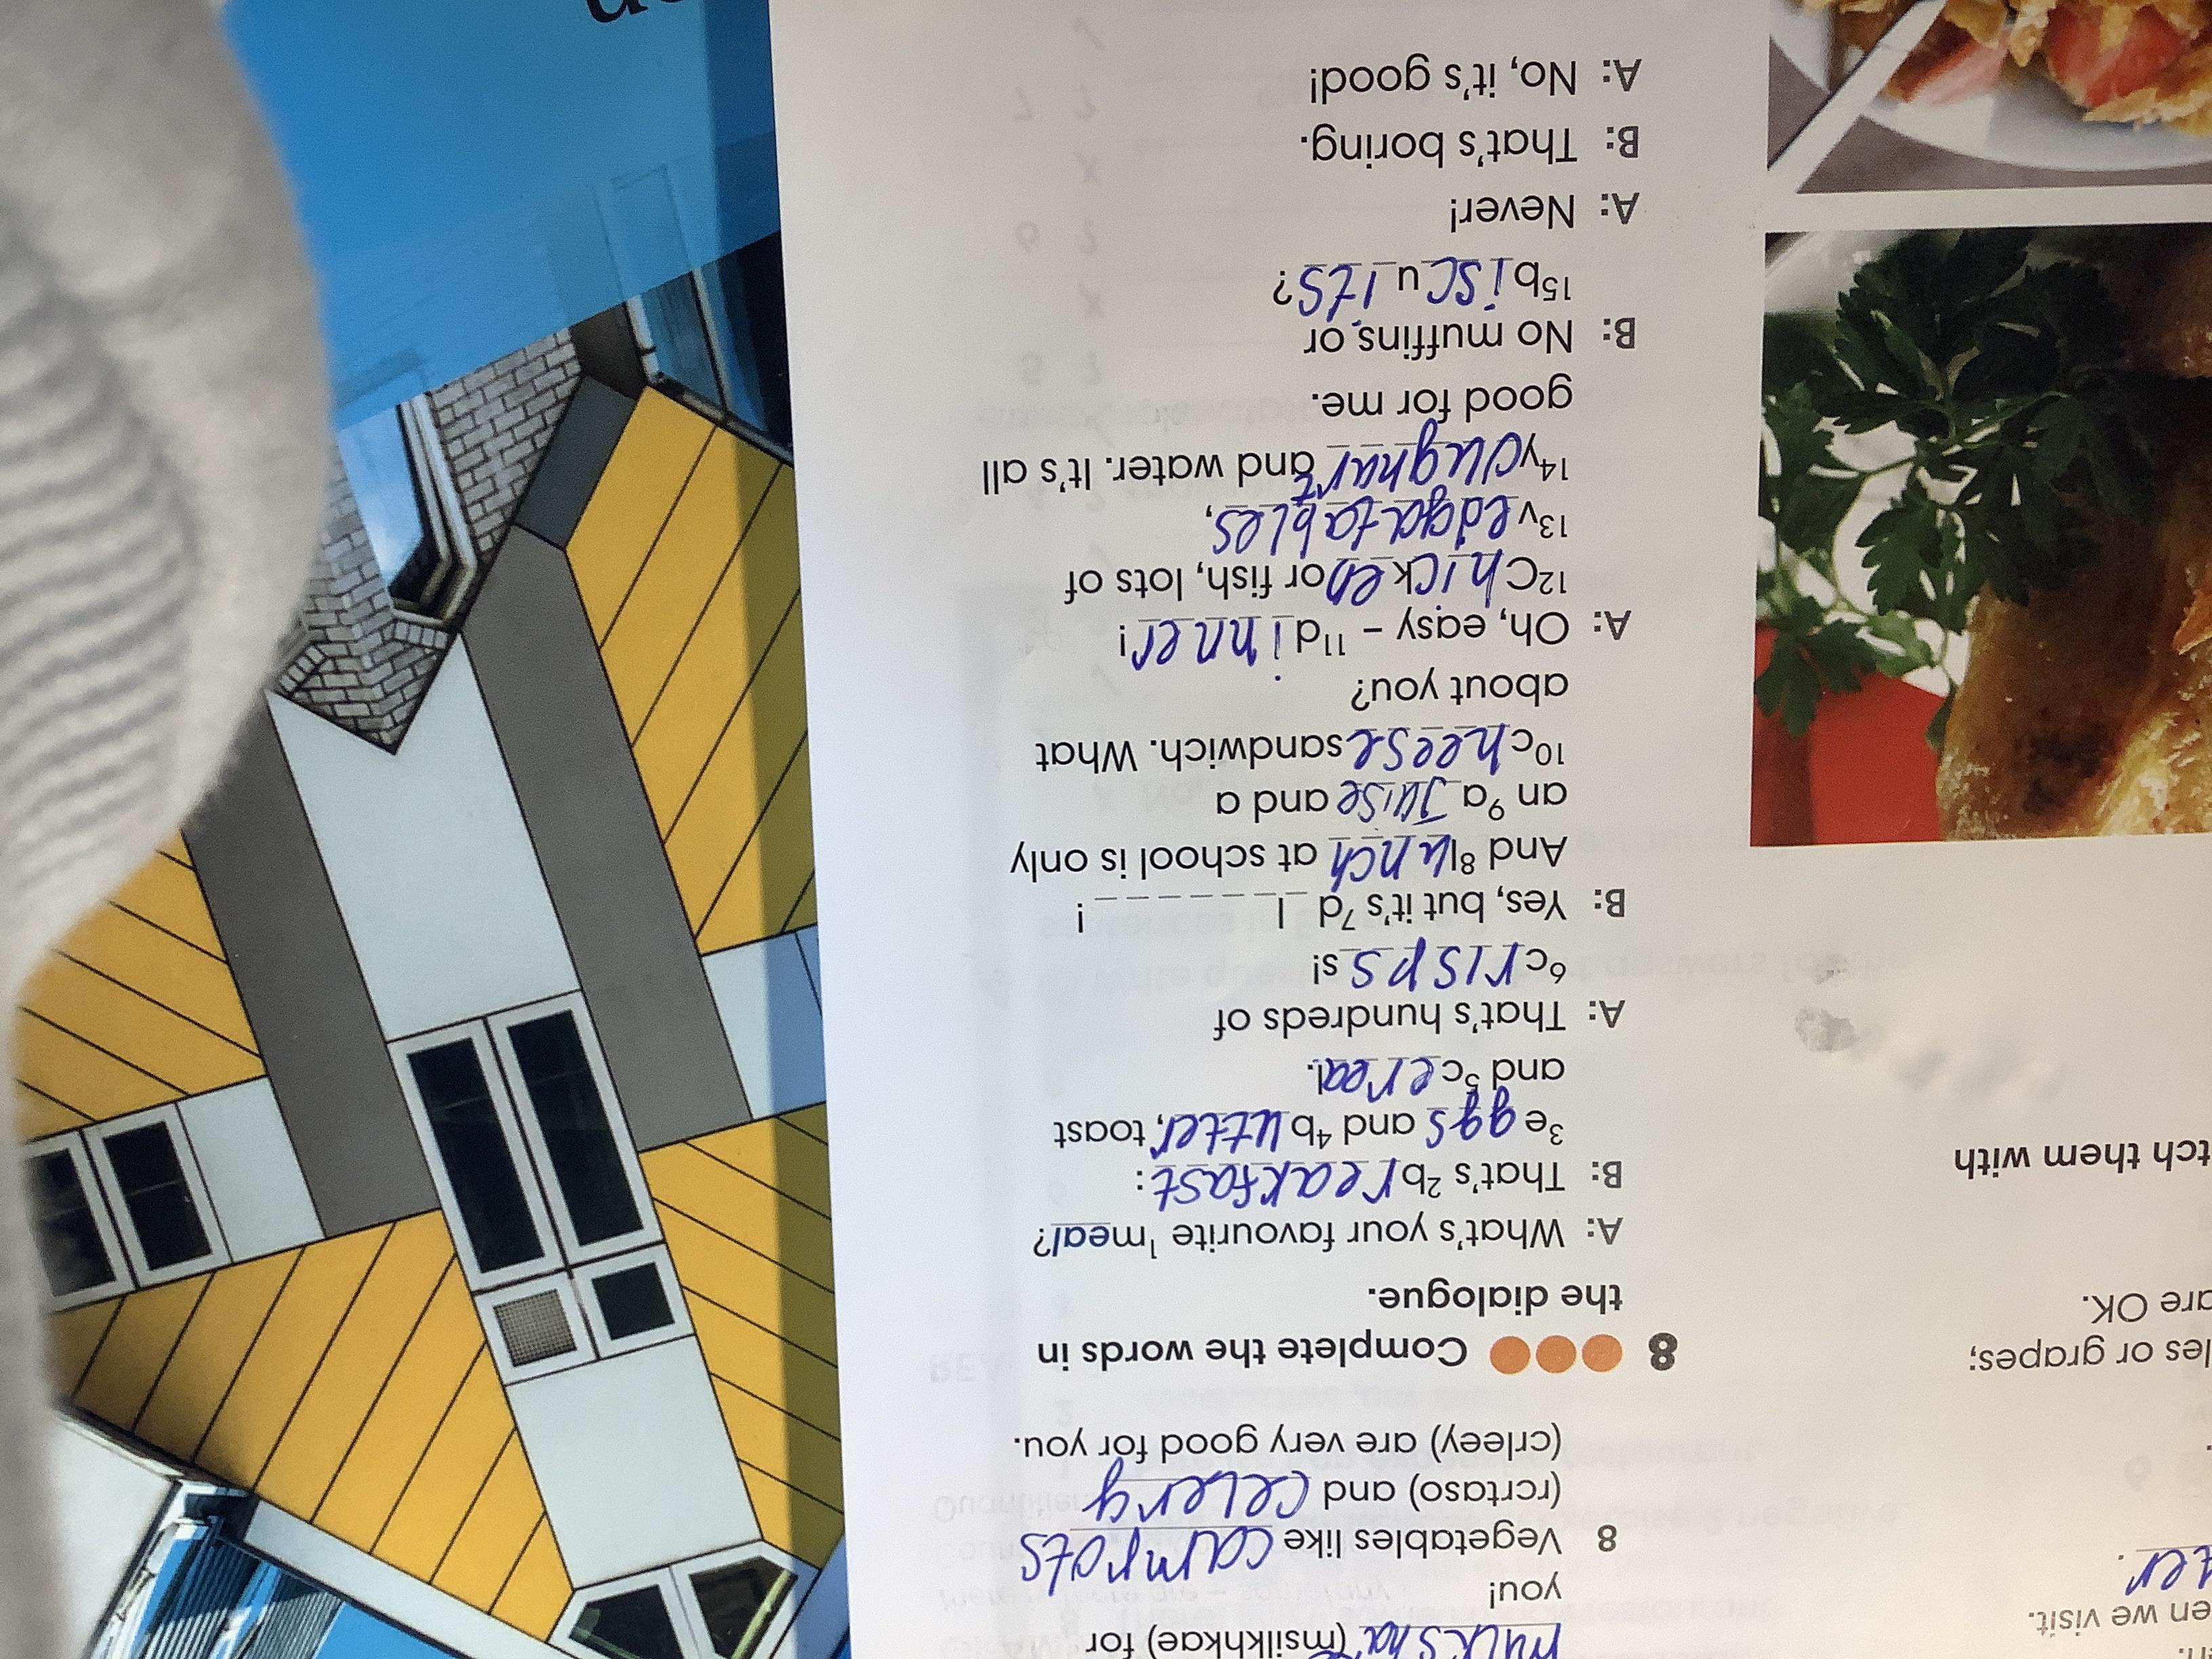 tch them with
les or grapes;
are OK.
en we visit.
(msilkhkae) for
you!
8 Vegetables like carrots
(rcrtaso) and celery
(crleey) are very good for you.
8 Complete the words in
the dialogue.
A: What's your favourite ¹meal?
B: That's ²breakfast:
³eggs and ⁴butter, toast
and ⁵cereal.
A: That's hundreds of
⁶crisps s!
B: Yes, but it's ⁷d_l_______!
And ⁸lunch at school is only
an ⁹a Juise and a
¹⁰cheese sandwich. What
about you?
A: Oh, easy – ¹¹dinner!
¹²Chicken or fish, lots of
¹³vedgatables,
¹⁴youghart and water. It's all
good for me.
B: No muffins or
¹⁵biscuits?
A: Never!
B: That's boring.
A: No, it's good!